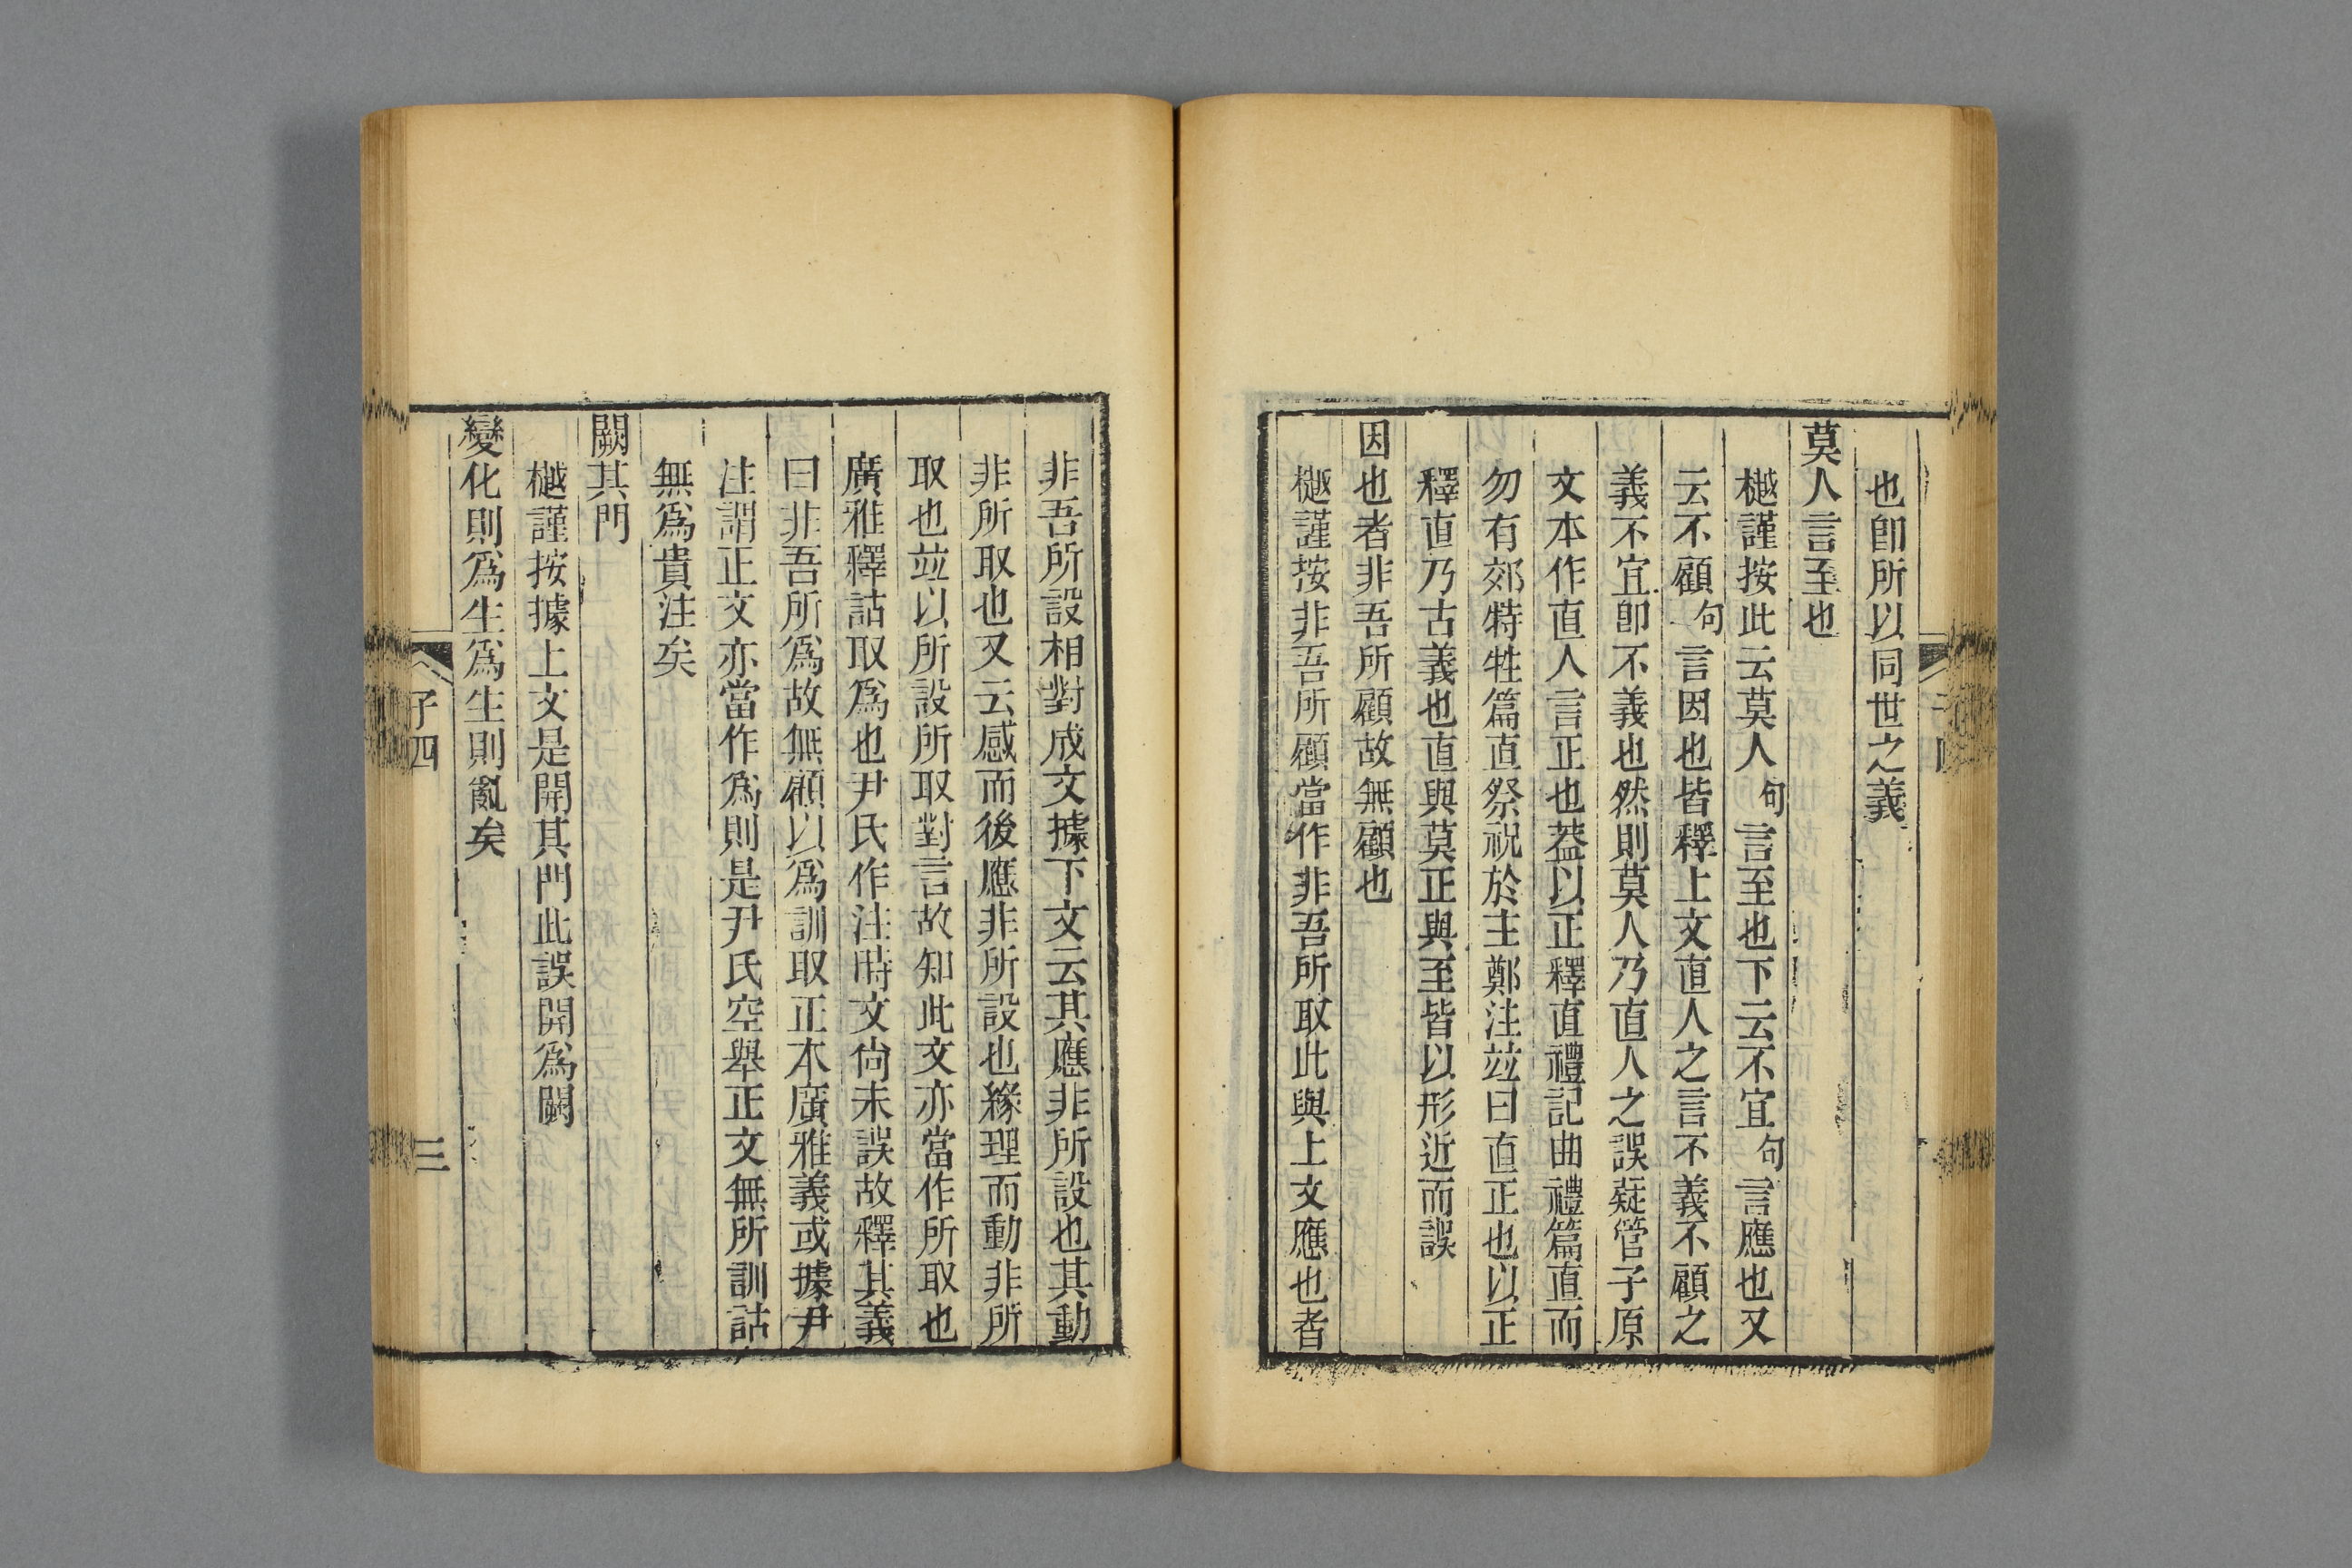 也卽所以同世之義
莫人言至也
樾謹按此云莫人句言至也下云不宜句言應也又
云不顧句言因也皆釋上文直人之言不義不顧之
義不宜卽不義也然則莫人乃直人之誤疑管子原
文本作直人言正也葢以正釋直禮記曲禮篇直而
勿有郊特牲篇直祭祝於主鄭注竝曰直正也以正
釋直乃古義也直與莫正與至皆以形近而誤
因也者非吾所顧故無顧也
樾謹按非吾所顧當作非吾所取此與上文應也者
非吾所設相對成文據下文云其應非所設也其動
非所取也又云感而後應非所設也緣理而動非所
取也竝以所設所取對言故知此文亦當作所取也
廣雅釋詁取爲也尹氏作注時文尙未誤故釋其義
曰非吾所爲故無顧以爲訓取正本廣雅義或據尹
注謂正文亦當作爲則是尹氏空舉正文無所訓詁
無爲貴注矣
闕其門
樾謹按據上文是開其門此誤開爲闕
變化則爲生爲生則亂矣
子四
三